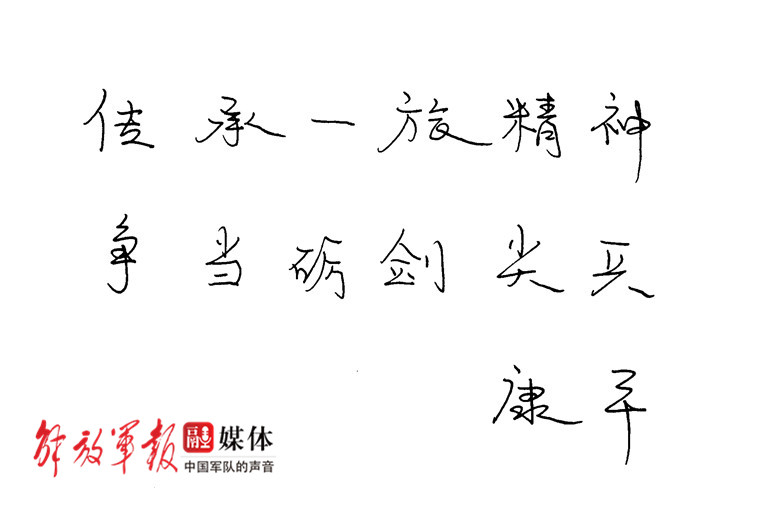 传承一旅精神
争当砺剑尖兵
康平
解放军报 融媒体
中国军队的声音